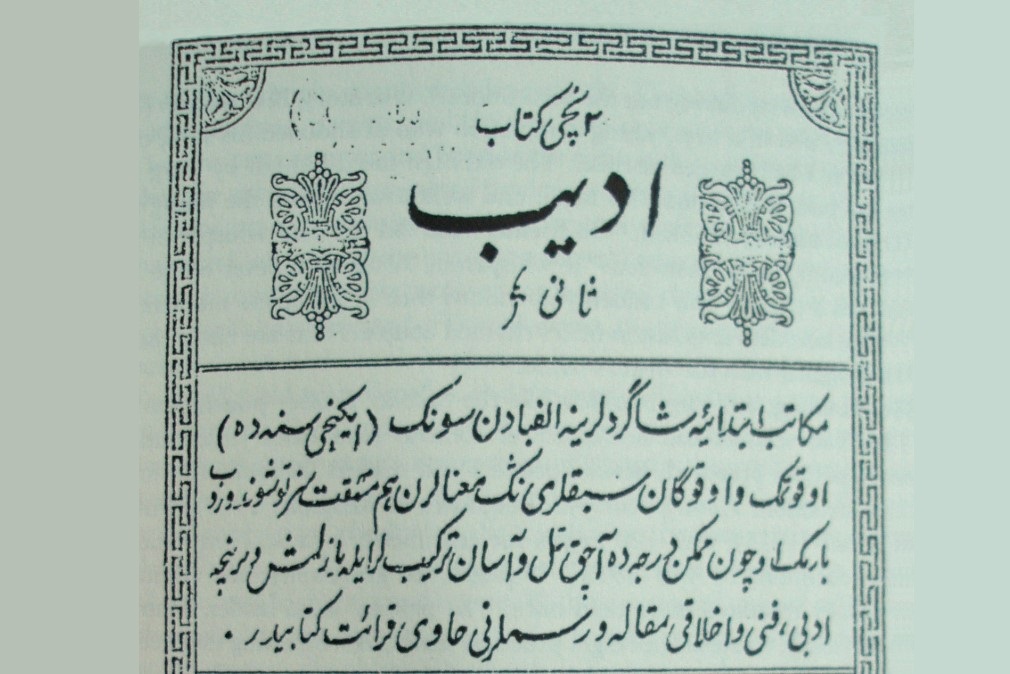 ۲ نچی کتاب
ادیب
ثانی
مکاتب ابتدائیه شاگردلرینه الفبادن سونک (ایکنچی سنه ده)
اوقوتمک و اوقوگان سبقلری ننگ معنالرن هم مشقت سز توشوندوروب
بارمک اوچون ممکن درجه ده آچیق تل و آسان ترکیب لر ایله یازلمش و برنچه
ادبی، فنی و اخلاقی مقاله و رسملرنی حاوی قرائت کتابیدر.